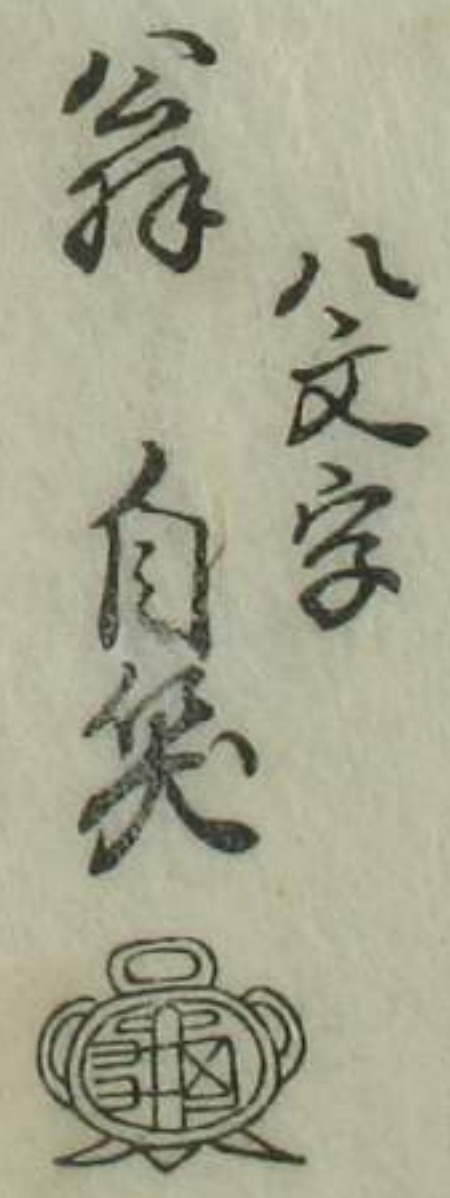 八文字
翁 自笑